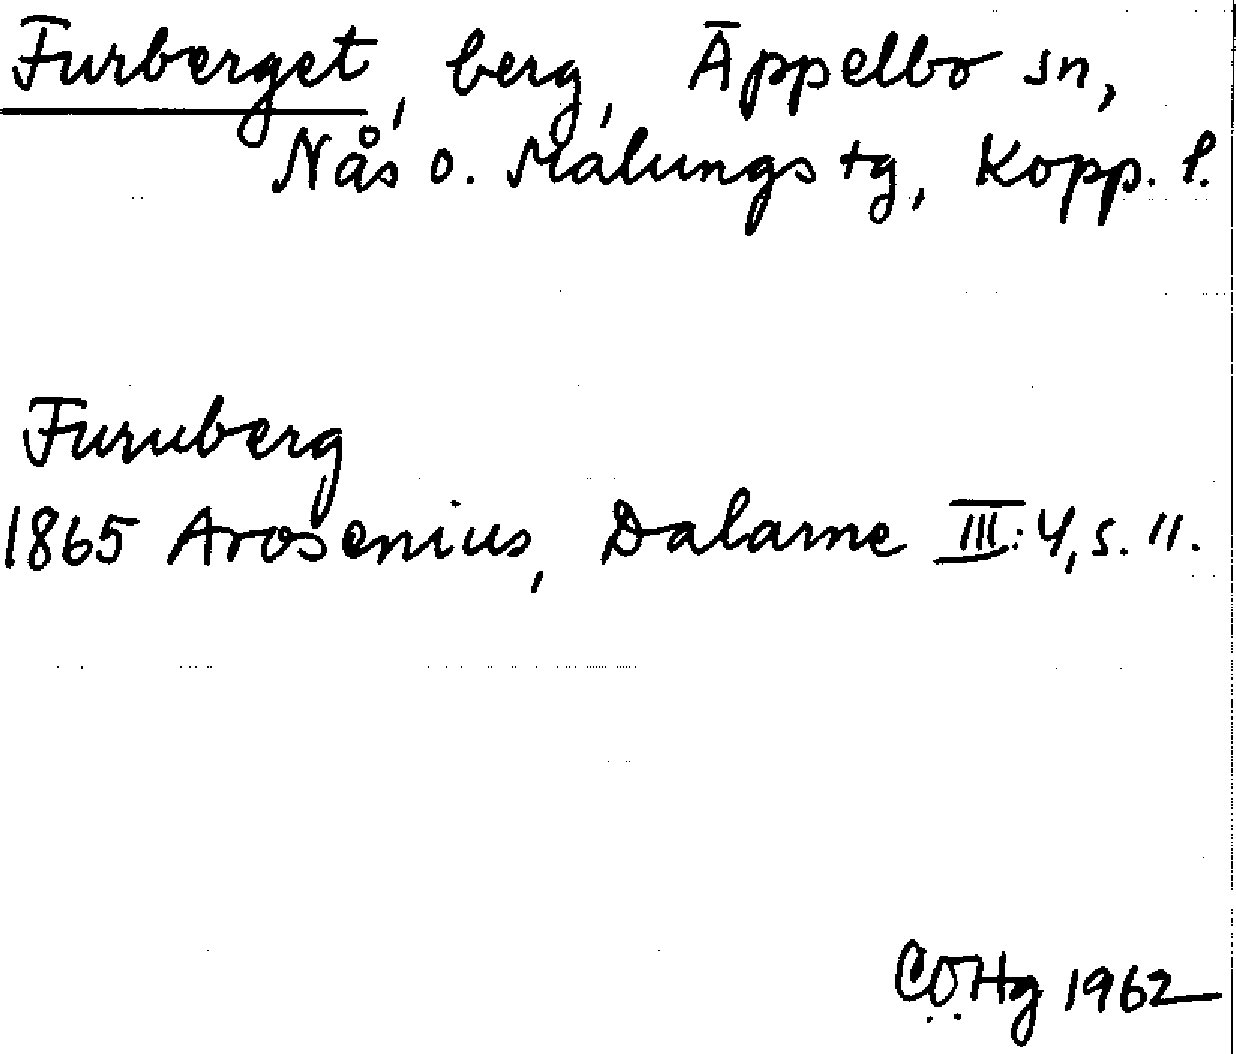 Furberget, berg, Äppelbo sn,
Nås o. Malungs tg, Kopp. l.
Furuberg
1865 Arosenius, Dalarne III:4, s. 11.
CÖHg 1962